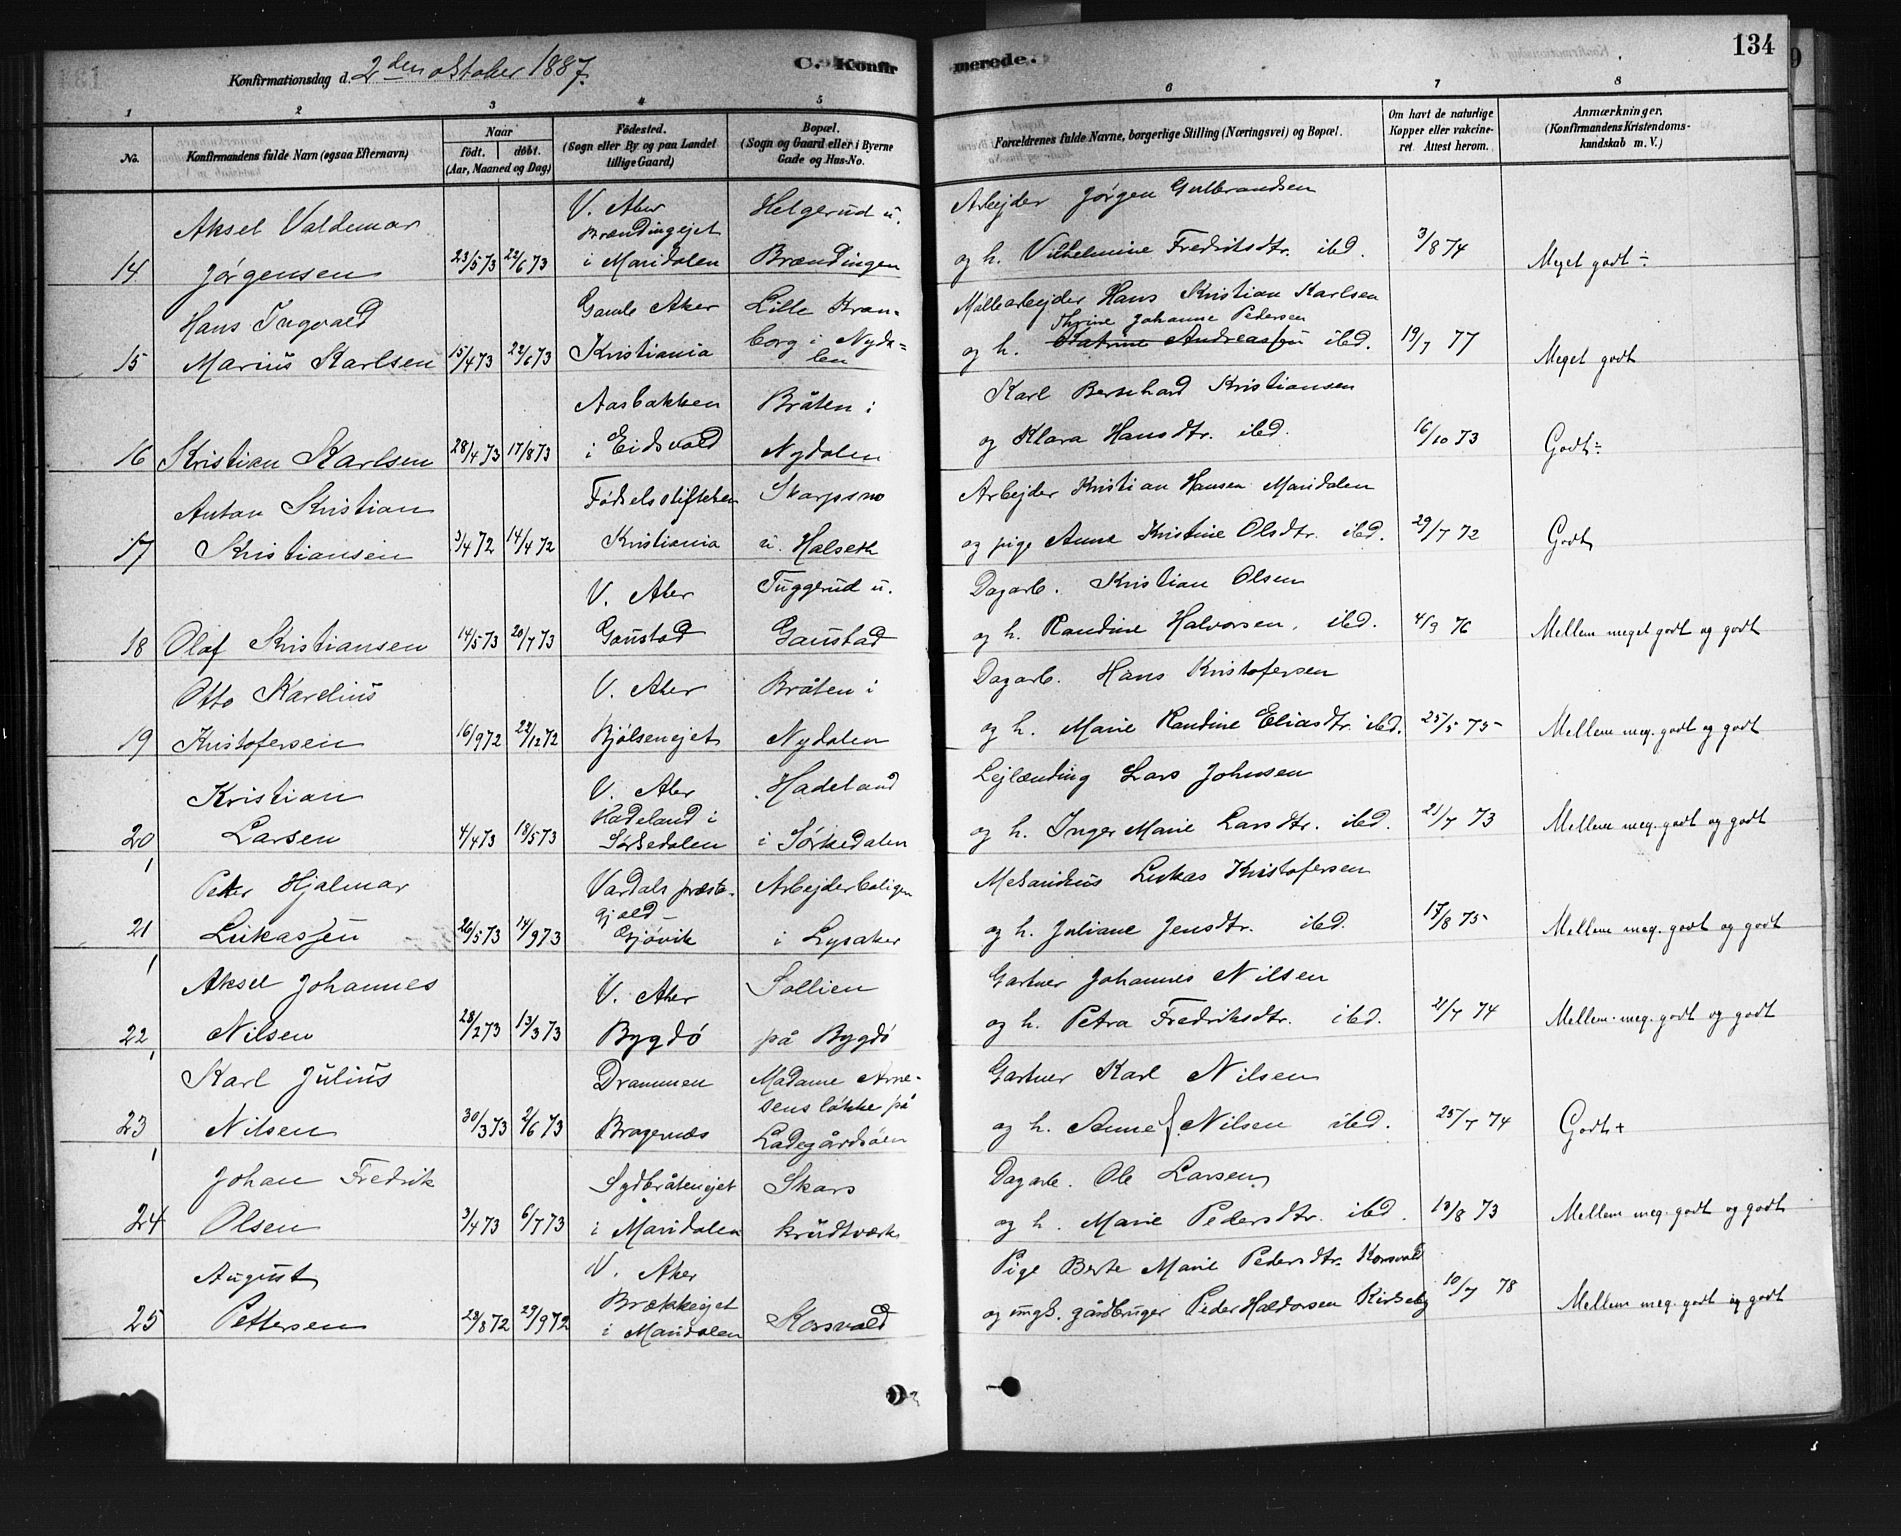 134
Konfirmationsdag d. 2den oktober 1887. C. Konfirmerede.
1 2 3 4 5 6 7 8
No. Konfirmandens fulde Navn (ogsaa Efternavn) Naar födt. döbt. (Aar, Maaned og Dag) Födested. (Sogn eller By og paa Landet tillige Gaard) Bopæl. (Sogn og Gaard eller i Byerne Gade og Hus-No. Forældrenes fulde Navne, borgerlige Stilling (Næringsvei) og Bopæl. Om havt de naturlige Kopper eller vakcineret. Attest herom. Anmærkninger. (Konfirmandens Kristendomskundskab m. V.)
Aksel Valdemar V. Aker Brændingejet Helgerud u. Arbejder Jörgen Gulbrandsen
14 Jörgensen 23/5 73 22/6 73 i Maridalen Brændingen og h. Vilhelmine Fredriksdtr. ibd. 3/8 74 Meget godt÷
Hans Ingvald Gamle Aker Lille Kran- Möllearbejder Hans Kristian Karlsen
Thrine Johanne Pedersen
15 Marius Karlsen 15/4 73 22/6 73 Kristiania borg i Nyda-len og h. Katrine Andreassen ibd. 19/7 77 Meget godt
Aasbakken Bråten i Karl Bernhard Kristiansen
16 Kristian Karlsen 28/4 73 17/8 73 i Eidsvold Nydalen og Klara Hansdtr. ibd. 16/10 73 Godt÷
Anton Kristian Födselsstiftelsen Skarpsno Arbejder Kristian Hansen Maridalen
17 Kristiansen 3/4 72 14/4 72 Kristiania u. Halseth og pige Anne Kristine Olsdtr. ibd. 29/7 72 Godt
V. Aker Tuggerud u. Dagarb. Kristian Olsen
18 Olaf Kristiansen 14/5 73 20/7 73 Gaustad Gaustad og h. Randine Halvorsen. ibd. 4/9 76 Mellem meget godt og godt
Otto Karelius V. Aker Bråten i Dagarb. Hans Kristofersen
19 Kristofersen 16/9 72 22/12 72 Bjölsenejet Nydalen og h. Marie Randine Eliasdtr. ibd. 25/5 75 Mellem meg. godt og godt
Kristian V. Aker Hadeland i Hadeland Lejlænding Lars Johnsen
20 Larsen 4/4 73 18/5 73 Sörkedalen i Sörkedalen og h. Inger Marie Larsdtr. ibd. 21/7 73 Mellem meg. godt og godt
Peter Hjalmar Vardals præste-gjæld- Arbejderboligen Mekanikus Lukas Kristofersen
21 Lukassen 26/5 73 14/9 73 Gjövik i Lysaker og h. Juliane Jensdtr. ibd. 17/8 75 Mellem meg. godt og godt
Aksel Johannes V. Aker Sollien Gartner Johannes Nilsen
22 Nilsen 28/2 73 13/3 73 Bygdö på Bygdö og h. Petra Fredriksdtr. ibd. 21/7 74 Mellem meg. godt og godt
Karl Julius Drammen Madame Arne-sens lökke på Gartner Karl Nilsen
23 Nilsen 30/3 73 2/6 73 Bragernæs Ladegårdsöen og h. Anne f. Nilsen ibd. 25/7 74 Godt+
Johan Fredrik Sydbråtenejet Skars Dagarb. Ole Larsen
24 Olsen 3/4 73 6/7 73 i Maridalen krudtværk og h. Marie Pedersdtr. ibd. 13/8 73 Mellem meg. godt og godt
August V. Aker Pige Berte Marie Pedersdtr. Korsvold
25 Pettersen 23/8 72 29/9 72 Brækkeejet i Maridalen Korsvold og ungk. gårdbruger Peder Haldorsen Kirkeby 10/7 78 Mellem meg. godt og godt